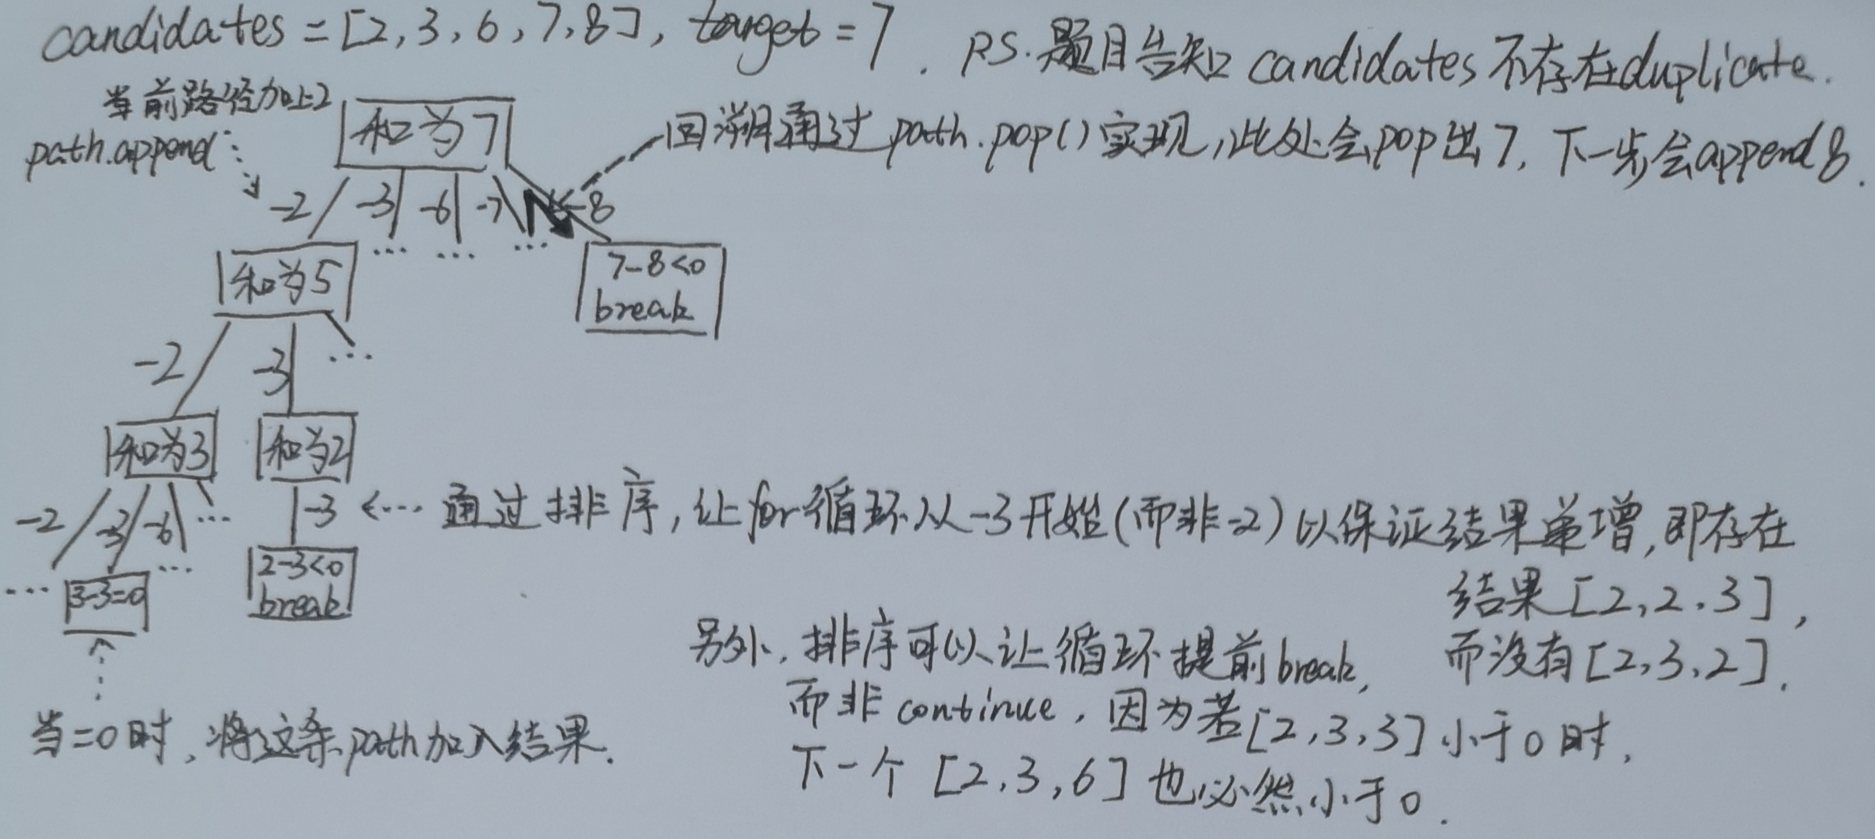 candidates = [2, 3, 6, 7, 8], target = 7. PS.题目告知 candidates 不存在duplicate.
当前路径加上2
path.append
和为7
回溯通过 path.pop() 实现,此处会pop出7, 下一步会append8.
-2 -3 -6 -7 -8
... ... ...
和为5
7-8<0
break
-2 -3 ...
和为3 和为2
-2 -3 -6 ... -3 <... 通过排序,让for循环从-3开始(而非-2)以保证结果单增,即存在
结果[2,2,3],
而没有[2,3,2].
... 3-3=0 ... 2-3<0
break
另外,排序可以让循环提前break,
而非 continue, 因为若[2,3,3]小于0时,
下一个[2,3,6]也必然小于0.
当=0时,将这条path加入结果.